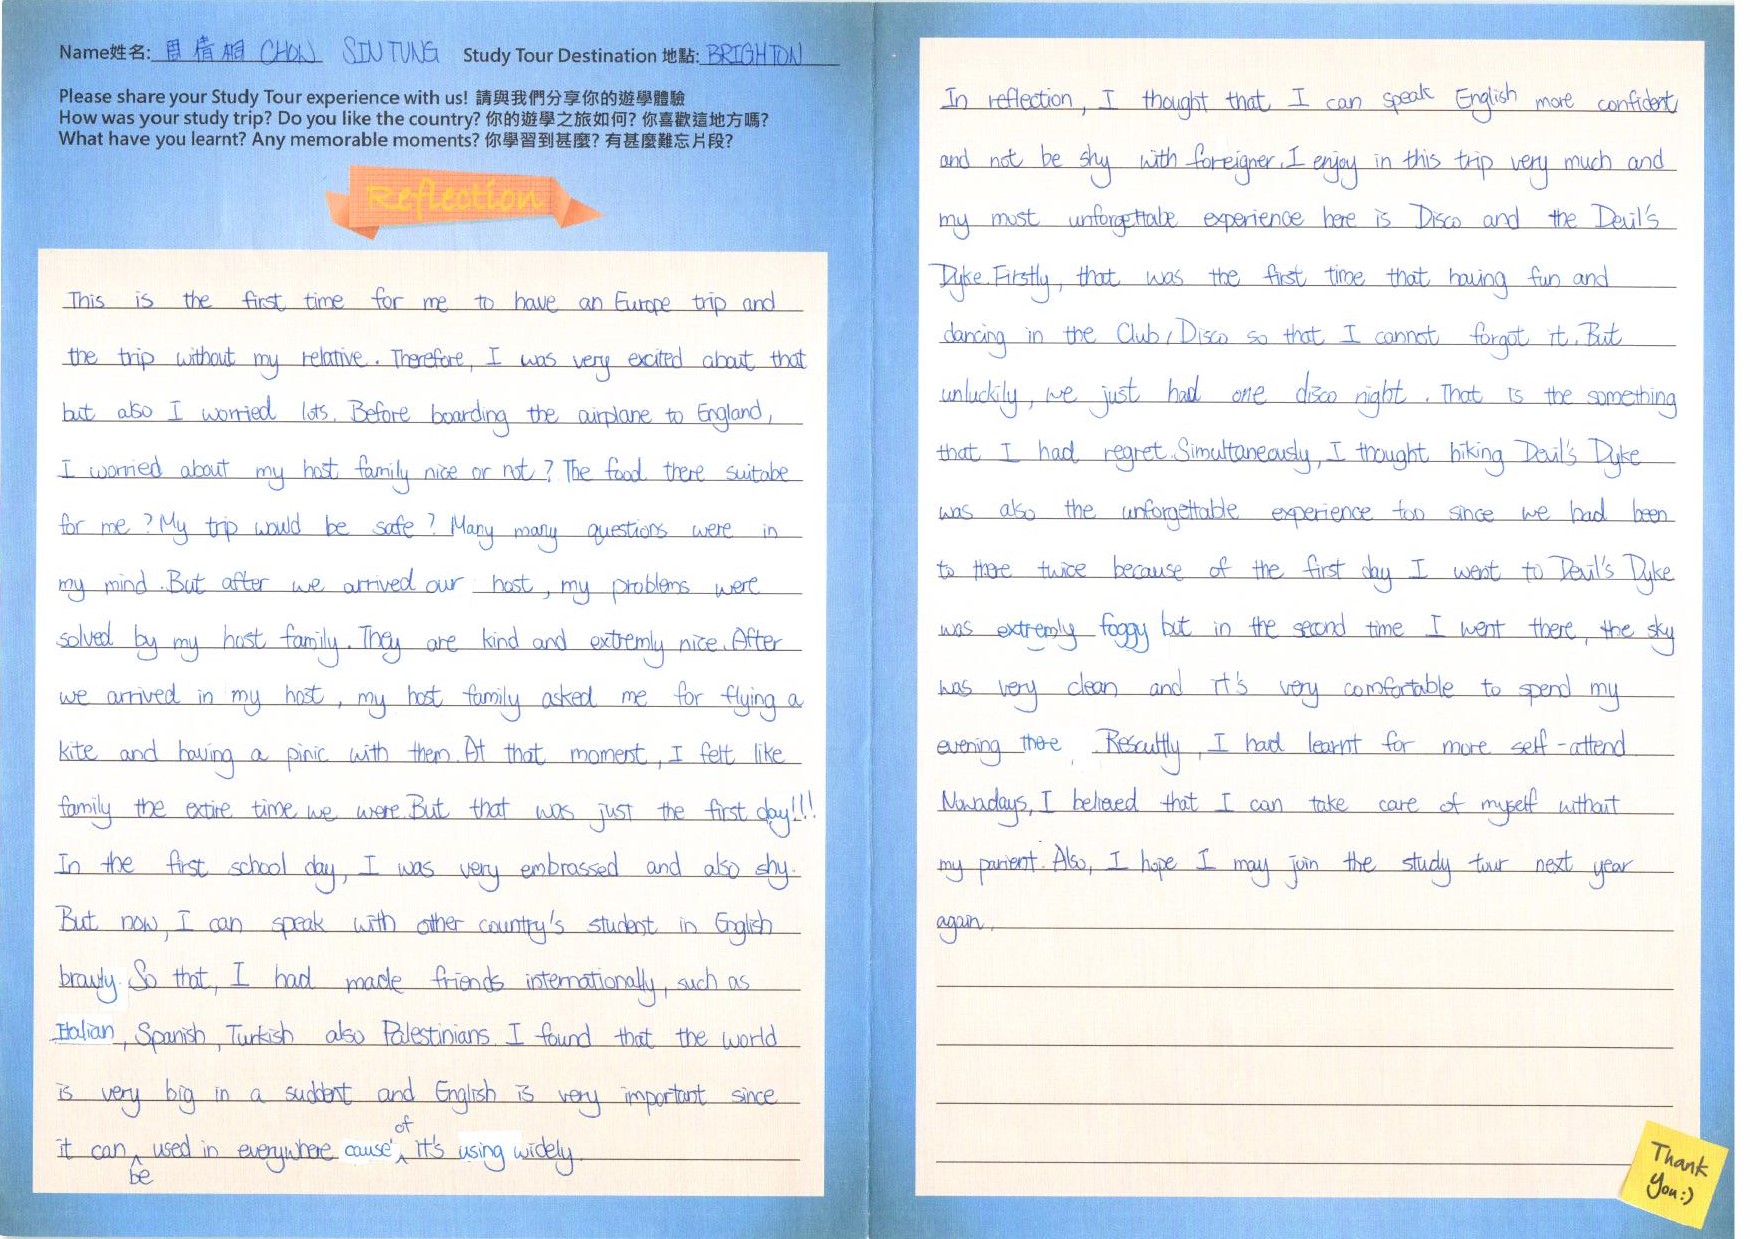 Name姓名: 周倩桐 CHON SIN TUNG Study Tour Destination 地點: BRIGHTON
Please share your Study Tour experience with us! 請與我們分享你的遊學體驗
How was your study trip? Do you like the country? 你的遊學之旅如何? 你喜歡這地方嗎?
What have you learnt? Any memorable moments? 你學習到甚麼? 有甚麼難忘片段?
Reflection
This is the first time for me to have an Europe trip and
the trip without my relative. Therefore, I was very excited about that
but also I worried lots. Before boarding the airplane to England,
I worried about my host family nice or not? The food there suitabe
for me? My trip would be safe? Many many questions were in
my mind. But after we arrived our host, my problems were
solved by my host family. They are kind and extremly nice. After
we arrived in my host, my host family asked me for flying a
kite and having a pinic with them. At that moment, I felt like
family the extire time we were. But that was just the first day!!!
In the first school day, I was very embrassed and also shy.
But now, I can speak with other country's student in English
bravly. So that, I had made friends internationally, such as
Italian, Spanish, Turkish also Palestinians. I found that the world
is very big in a suddent and English is very important since
it can be used in everywhere cause' of it's using widely.
In reflection, I thought that I can speak English more confident
and not be shy with foreigner. I enjoy in this trip very much and
my most unforgettabe experience here is Disco and the Devil's
Dyke. Firstly, that was the first time that having fun and
dancing in the Club/Disco so that I cannot forgot it. But
unluckily, we just had one disco night. That is the something
that I had regret. Simultaneously, I thought hiking Devil's Dyke
was also the unforgettable experience too since we had been
to there twice because of the first day I went to Devil's Dyke
was extremly foggy but in the second time I went there, the sky
was very clean and it's very comfortable to spend my
evening there. Rescultly, I had learnt for more self-attend
Nowadays, I believed that I can take care of myself without
my parient. Also, I hope I may join the study tour next year
again.
Thank
You:)